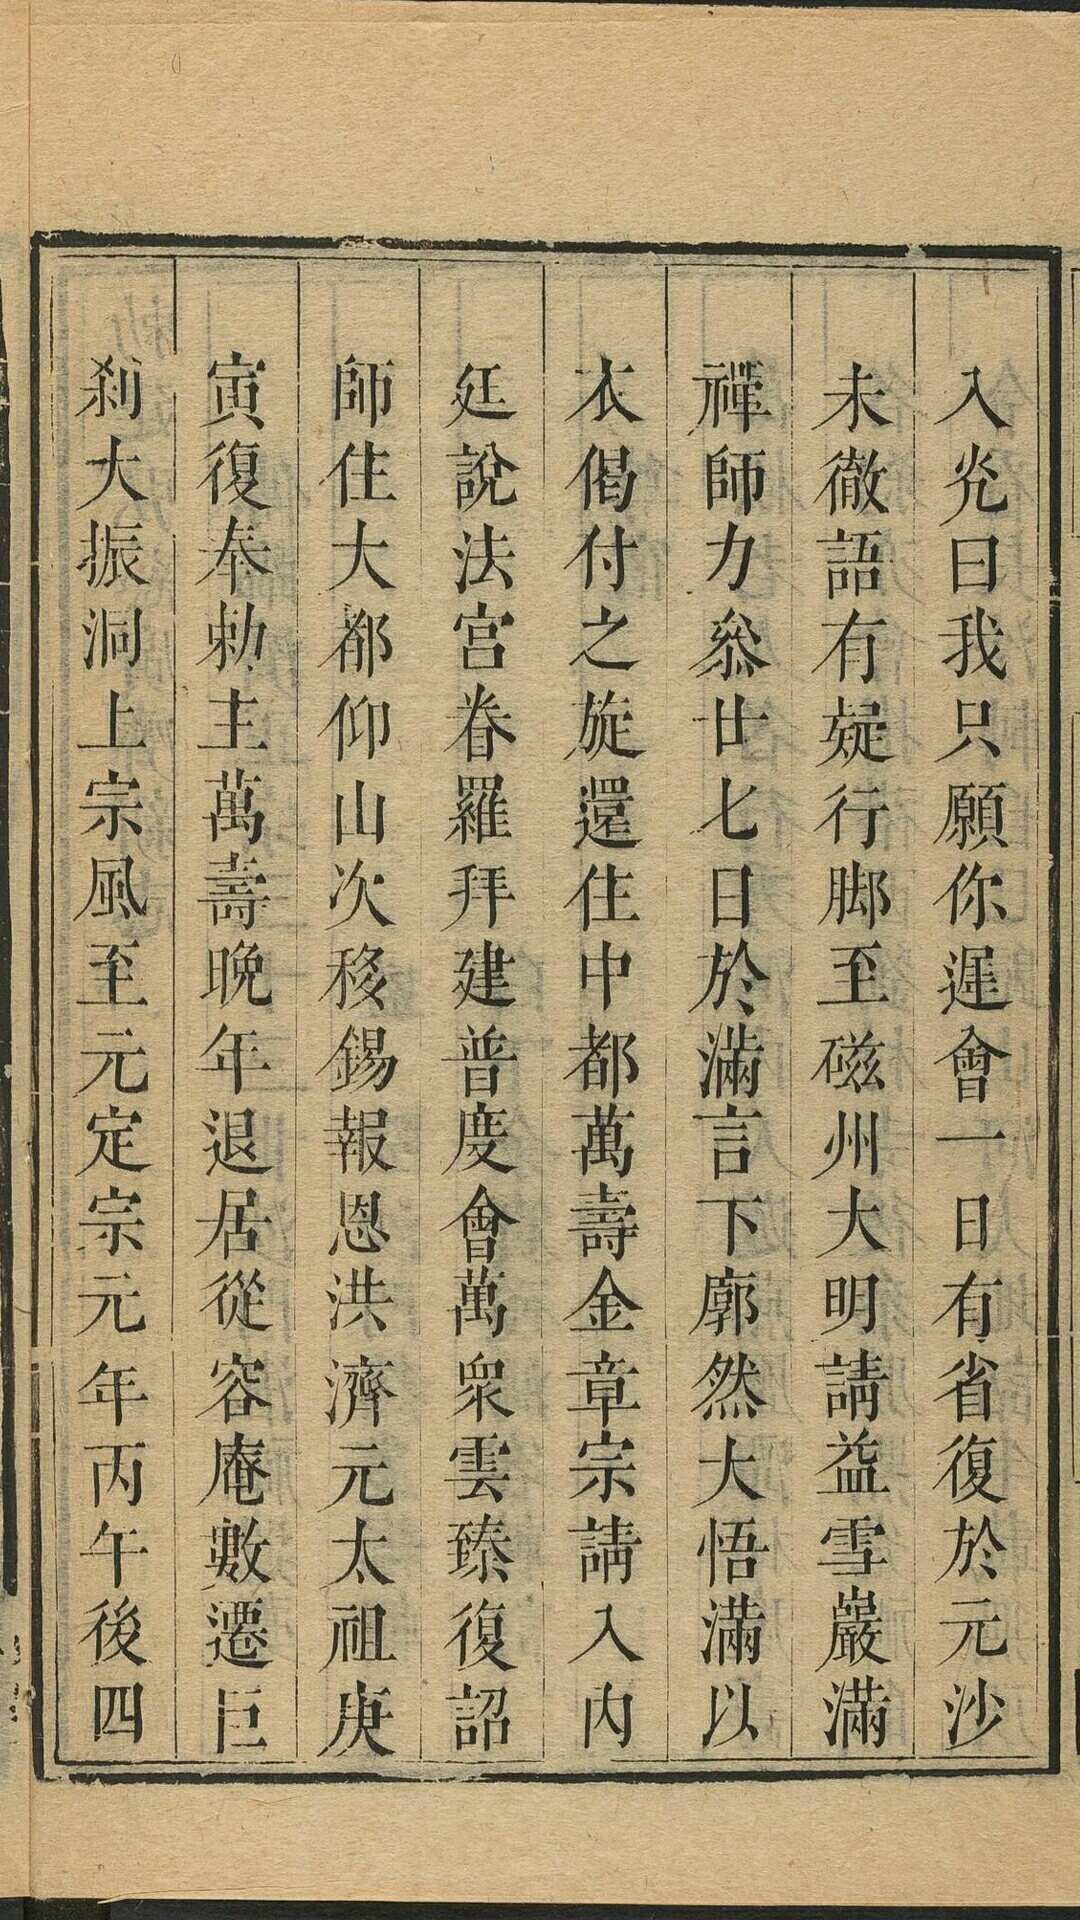 入光曰我只願你遲會一日有省復於元沙
未徹語有疑行脚至磁州大明請益雪巖滿
禪師力叅廿七日於滿言下廓然大悟滿以
衣偈付之旋還住中都萬壽金章宗請入内
廷說法宮眷羅拜建普度會萬衆雲臻復詔
師住大都仰山次移錫報恩洪濟元太祖庚
寅復奉勅主萬壽晚年退居從容庵數遷巨
刹大振洞上宗風至元定宗元年丙午後四